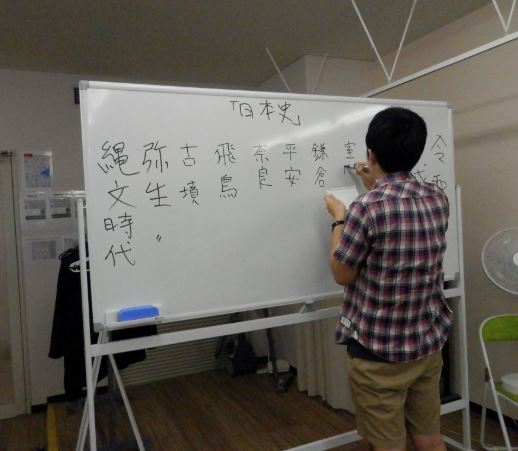 「日本史
縄文時代
弥生〃
古墳
飛鳥
奈良
平安
鎌倉
室